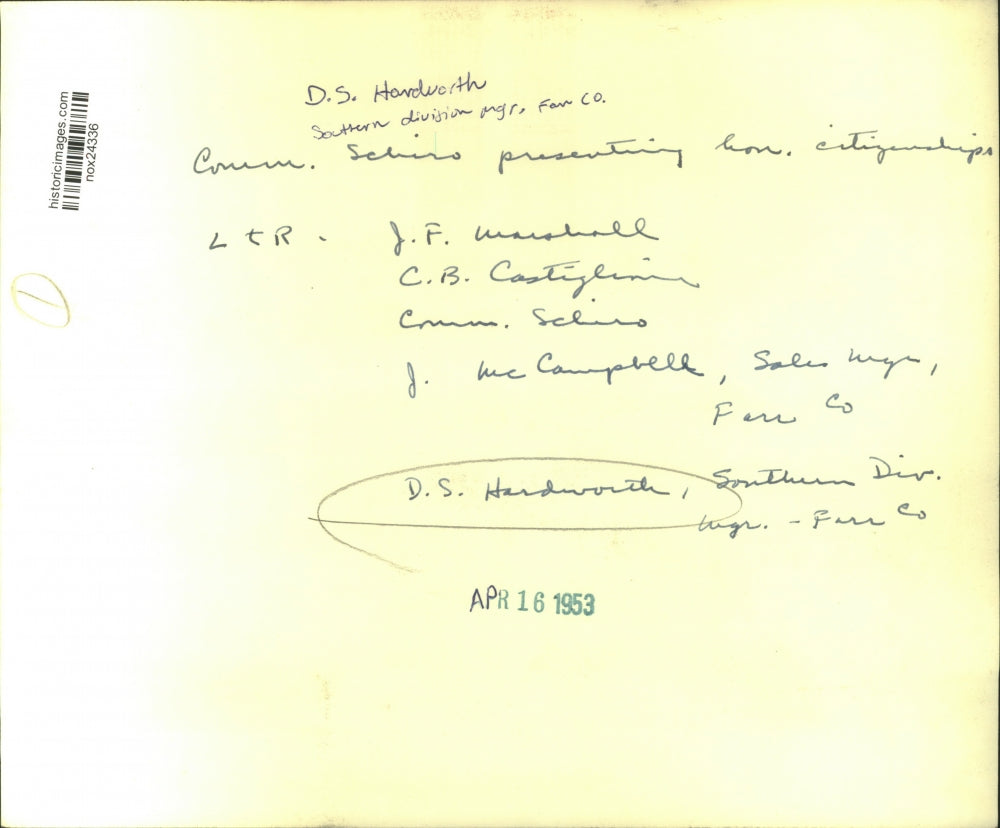 D.S. Hardworth
Southern division mgr, Farr Co.
Comm. Schiro presenting hon. citizenships
L t R. J.F. Marshall
C.B.
Comm. Schiro
J. McCampbell, Sales Mgr,
Farr Co
D.S. Hardworth, Southern Div.
Mgr. - Farr Co
APR 16 1953
historicimages.com
nox24336
1